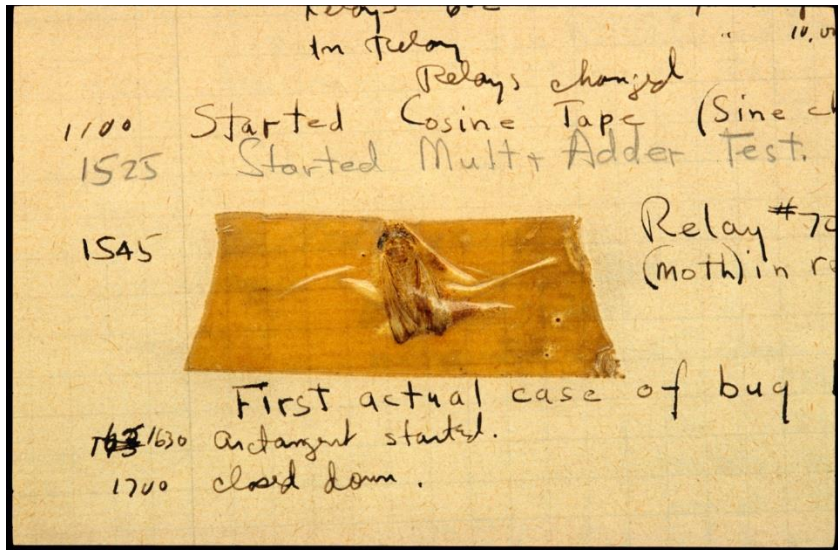 Relays
In Relay " 10,00
Relays changed
1100 Started Cosine Tape (Sine ch
1525 Started Mult + Adder Test.
1545 Relay #70
(moth) in re
First actual case of bug
1630 arctangent started.
1700 closed down.